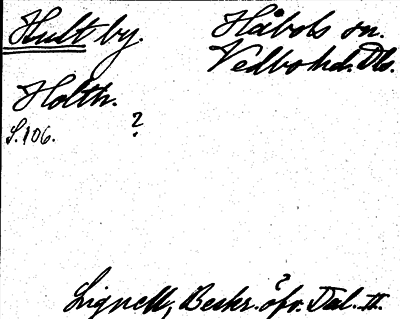 Hult by.
Håbols sn.
Vedbo hd. Dls.
Holth.
S. 106.
?
?
Lignell, Beskr. öfv. Dal. II.